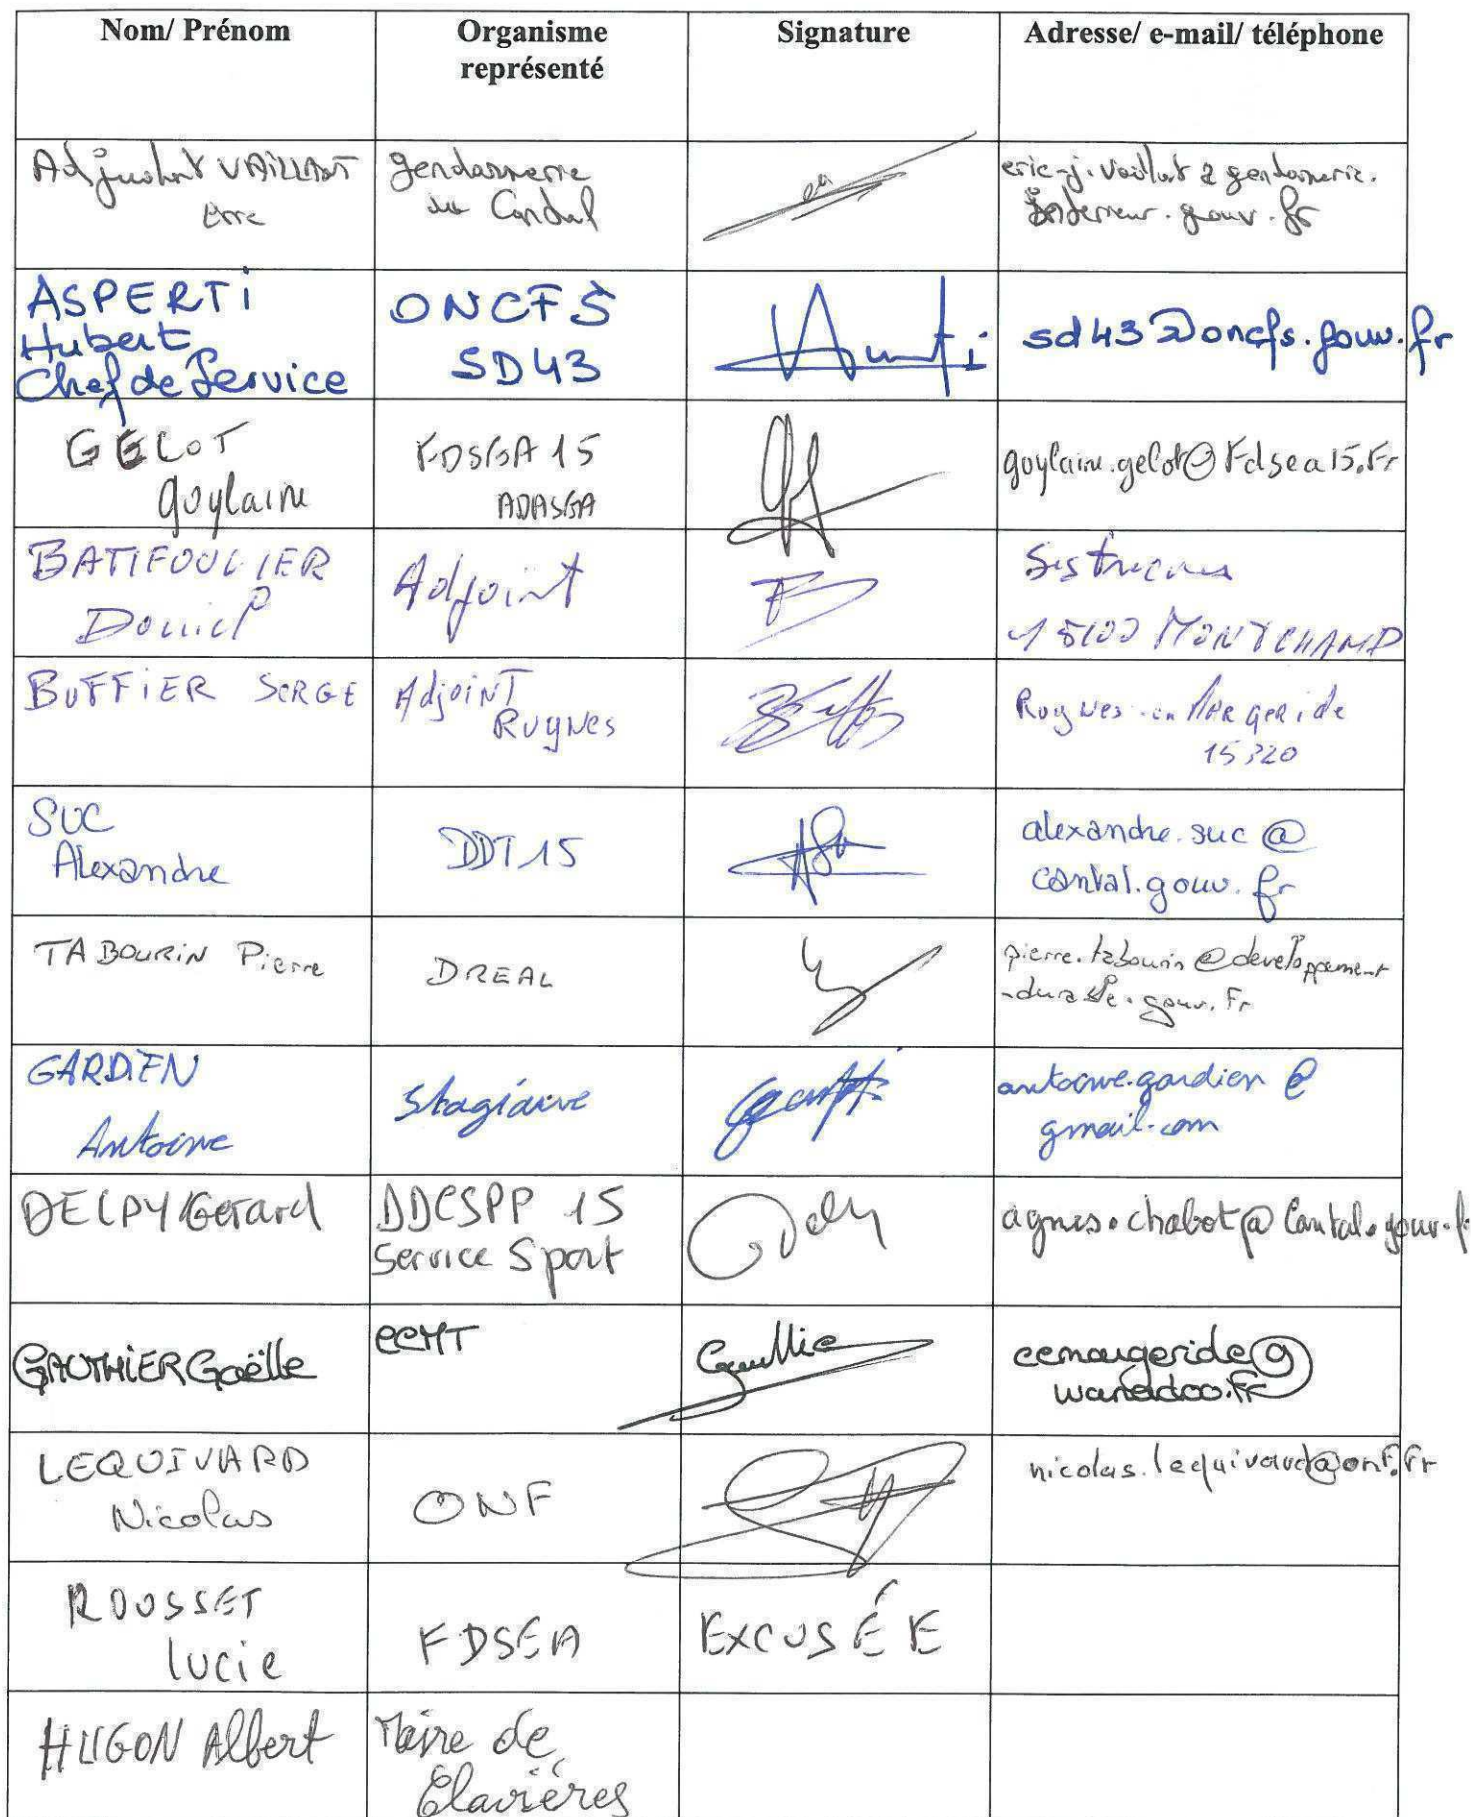 Nom/ Prénom
Organisme
représenté
Signature
Adresse/ e-mail/ téléphone
Adjudant VAILLANT
gendarmerie
du Cantal
eric-j.vaillant @ gendarmerie.
interieur.gouv.fr
ASPERTI
Hubert
Chef de Service
ONCFS
SD43
sd43@oncfs.gouv.fr
GELOT
guylaine
FDSEA 15
ADASEA
guylaine.gelot@Fdsea15.Fr
BATIFOULIER
Daniel
Adjoint
15100 MONTCHAMP
BUFFIER SERGE
Adjoint
Ruynes
Ruynes-en Margeride
15320
SUC
Alexandre
DDT 15
alexandre.suc @
cantal.gouv.fr
TABOURIN Pierre
DREAL
pierre.tabourin @developpement
-durable.gouv.Fr
GARDIEN
Antoine
Stagiaire
antoine.gardien @
gmail.com
DELPY Gerard
DDCSPP 15
Service Sport
agnes.chabot@Cantal.gouv.f
GAUTHIER Gaëlle
CCMT
ccmargeride@
wanadoo.fr
LEQUIVARD
Nicolas
ONF
nicolas.lequivard@onf.fr
ROUSSET
Lucie
FDSEA
EXCUSÉE
HUGON Albert
Maire de
Clavières